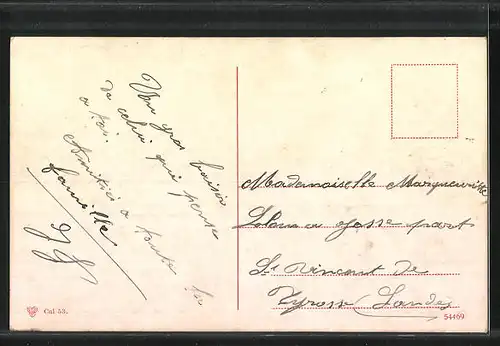 Un gros baiser
de celui qui pense
a toi.
Amitiés a toute la
famille
Mademoiselle Marguerite
a Josse part
St Vincent de
Tyrosse (Landes)
Cal 53.
54469